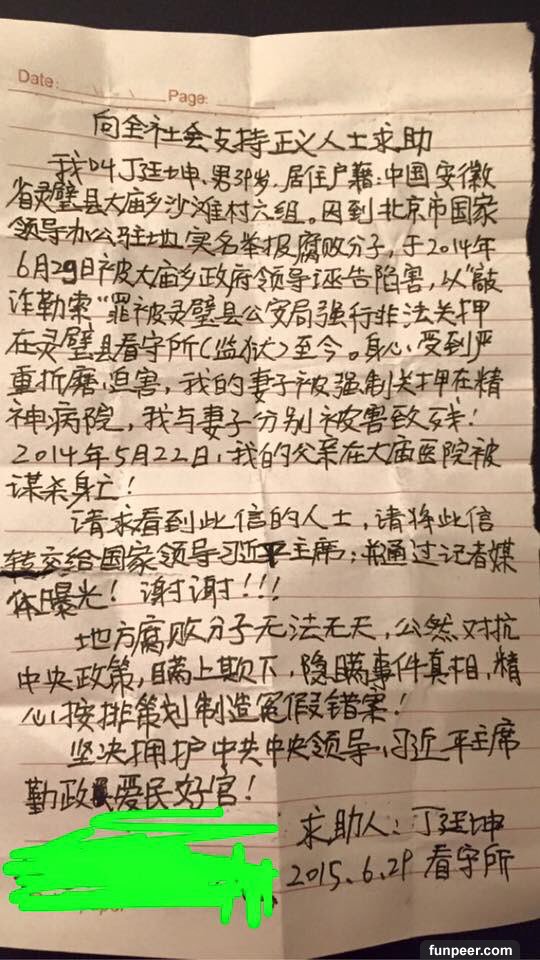 Date:
Page:
向全社会支持正义人士求助
我叫丁廷坤、男39岁,居住户籍:中国安徽
省灵璧县大庙乡沙滩村六组。因到北京市国家
领导办公驻地实名举报腐败分子,于2014年
6月29日被大庙乡政府领导诬告陷害,以“敲
诈勒索”罪被灵璧县公安局强行非法关押
在灵璧县看守所(监狱)至今。身心受到严
重折磨迫害,我的妻子被强制关押在精
神病院,我与妻子分别被害致残!
2014年5月22日,我的父亲在大庙医院被
谋杀身亡!
请求看到此信的人士,请将此信
转交给国家领导习近平主席;并通过记者媒
体曝光!谢谢!!!
地方腐败分子无法无天,公然对抗
中央政策,瞒上欺下,隐瞒事件真相,精
心按排策划制造冤假错案!
坚决拥护中共中央领导、习近平主席
勤政爱民好官!
求助人:丁廷坤
2015.6.29 看守所
funpeer.com